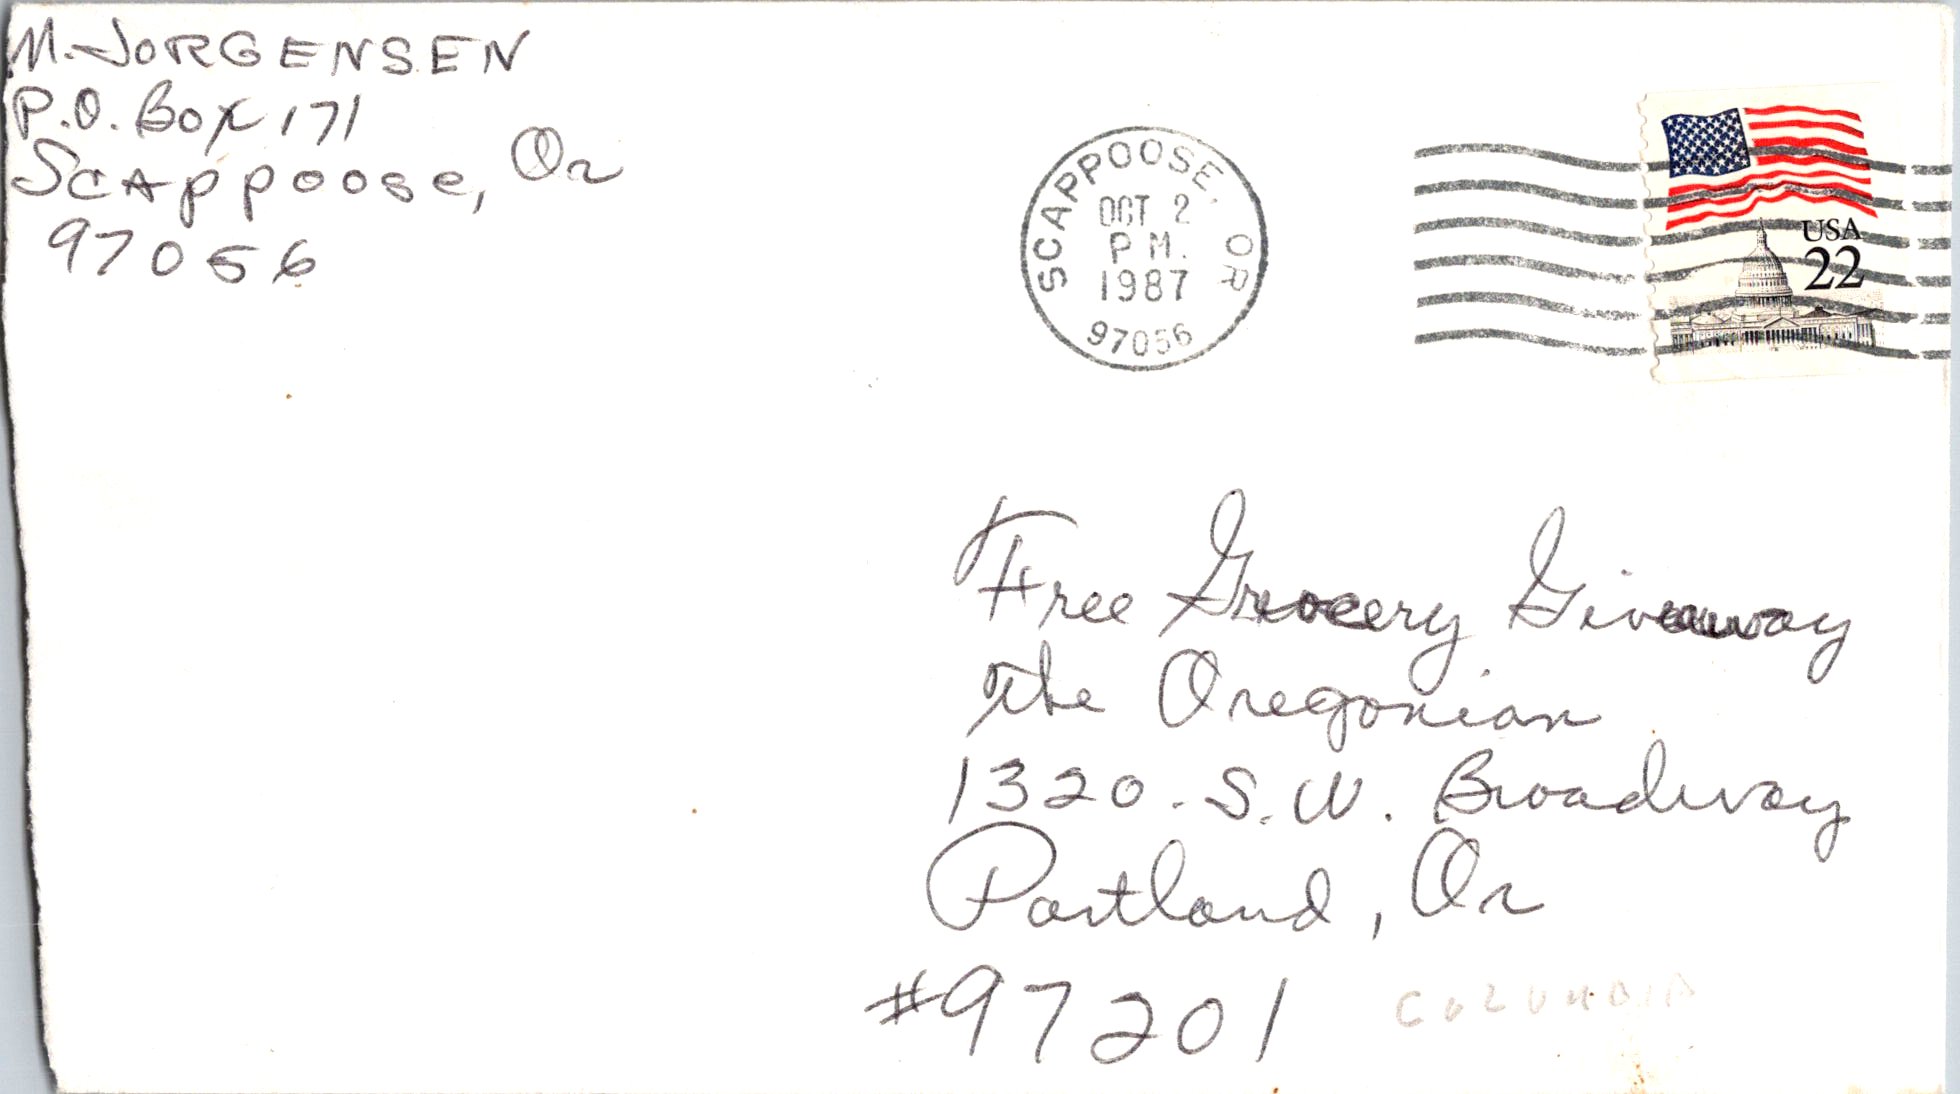 M. JORGENSEN
P.O. Box 171
Scappoose, Or
97056
SCAPPOOSE, OR
OCT 2
P M.
1987
97056
USA
22
Free Grocery Giveaway
The Oregonian
1320 - S.W. Broadway
Portland, Or
#97201
COLUMBIA